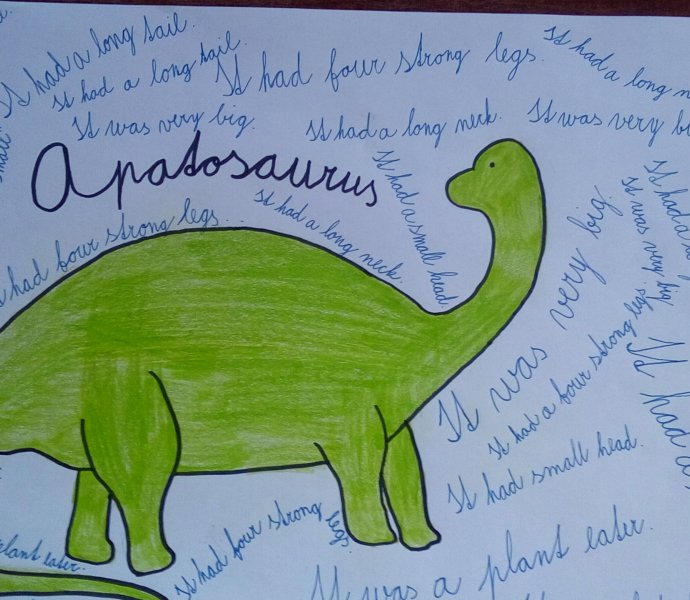 It had a long tail.
It had a long tail.
It had four strong legs.
It had a long
It was very big.
It had a long neck.
It was very
Apatosaurus
It had a small head.
It had a long neck.
had four strong legs...
It was very big.
It was very big.
It had a
It had a four strong legs
It had a
It had small head.
It had four strong legs.
plant eater.
It was a plant eater.